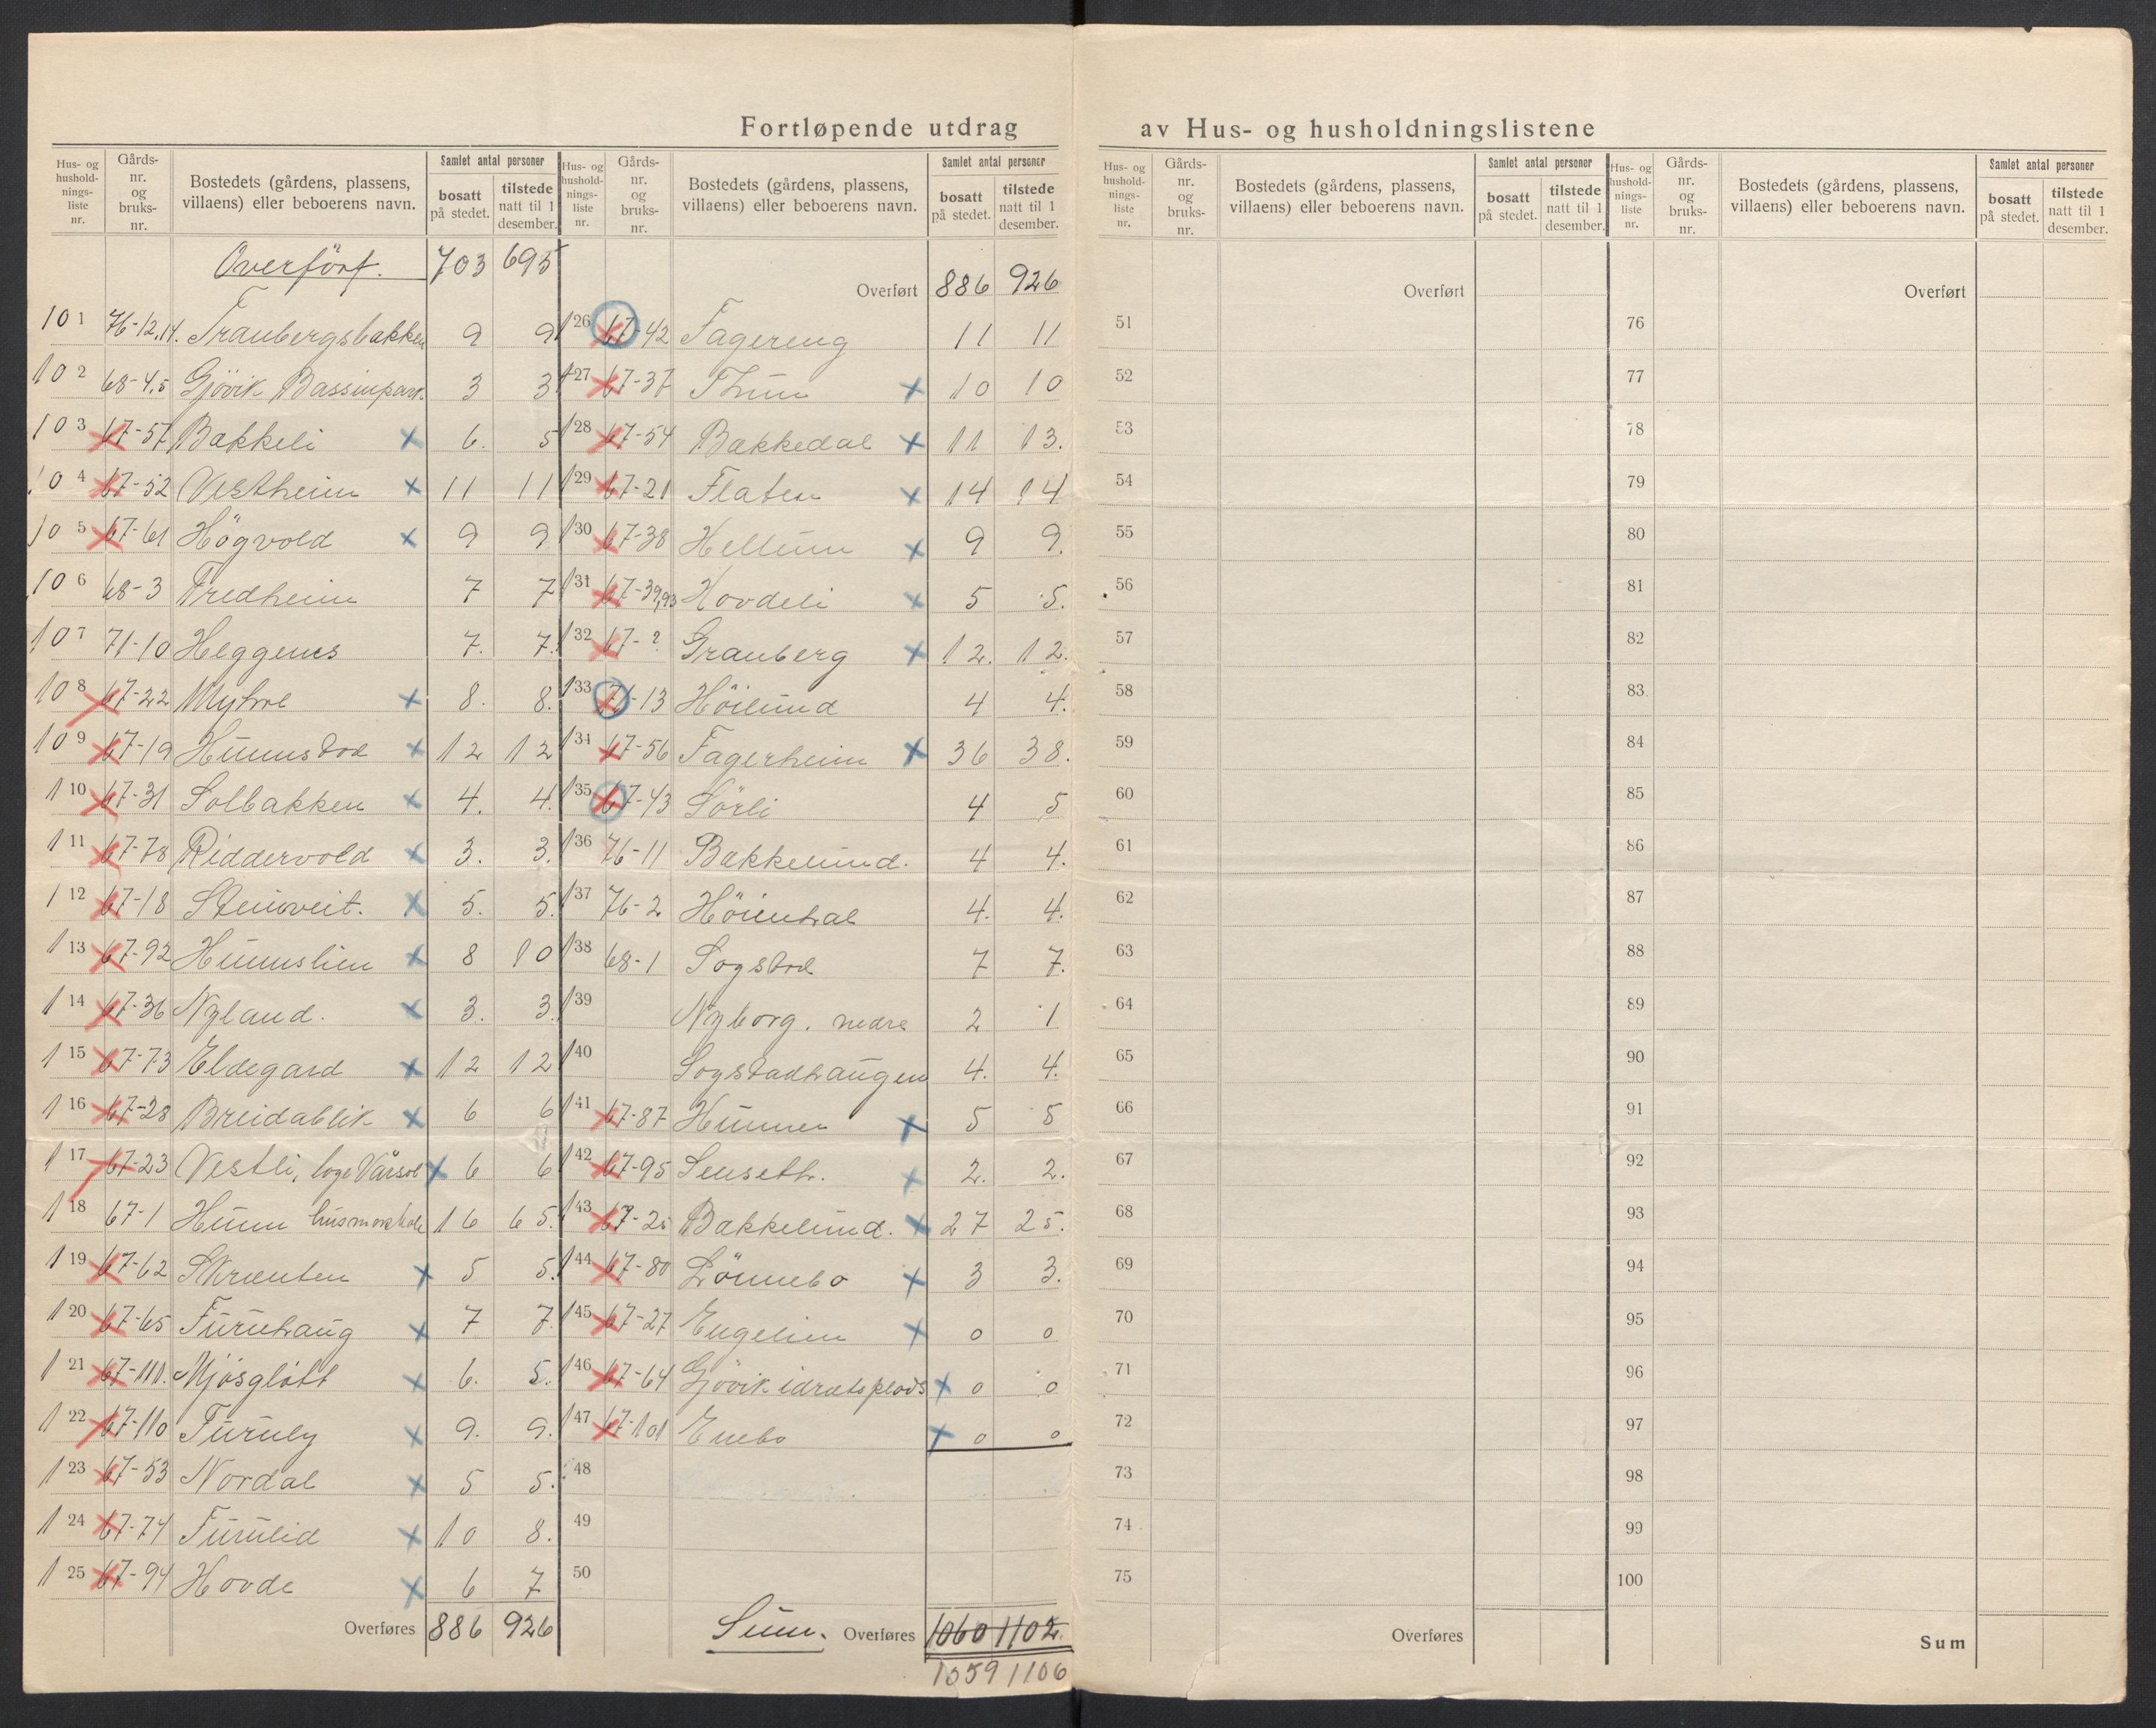 Fortløpende utdrag av Hus- og husholdningslistene
Hus- og husholdnings-liste nr. | Gårds-nr. og bruks-nr. | Bostedets (gårdens, plassens, villaens) eller beboerens navn. | Samlet antal personer bosatt på stedet. | tilstede natt til 1 desember.
Overfört. 703 695
101 76-12,14. Traubergsbakken 9 9
102 68-4,5 Gjövik Bassinpark. 3 3
103 67-57 Bakkeli x 6. 5
104 67-52 Vestheim x 11 11
105 67-61 Högvold x 9 9
106 68-3 Fredheim 7 7
107 71-10 Heggenes 7. 7.
108 67-22 Myhre x 8. 8.
109 67-19 Hunnstad x 12 12
110 67-31 Solbakken x 4. 4.
111 67-78 Riddervold x 3. 3.
112 67-18 Stensveit. x 5. 5.
113 67-92 Hunnslien x 8 10
114 67-36 Nyland. x 3. 3.
115 67-73 Eldegard x 12 12
116 67-28 Breidablik x 6 6
117 67-23 Vestli, loge Vårsol x 6 6
118 67-1 Hunn husmorskole 16 65.
119 67-62 Skrænten x 5 5.
120 67-65 Furuhaug x 7 7.
121 67-111. Mjösglött x 6. 5.
122 67-110 Furuly x 9. 9.
123 67-53 Nordal x 5 5.
124 67-74 Furulid x 10 8.
125 67-94 Hovde x 6 7
Overføres 886 926
Hus- og husholdnings-liste nr. | Gårds-nr. og bruks-nr. | Bostedets (gårdens, plassens, villaens) eller beboerens navn. | Samlet antal personer bosatt på stedet. | tilstede natt til 1 desember.
Overført 886 926
126 67-42 Fagereng 11 11
127 67-37 Thun x 10 10
128 67-54 Bakkedal x 11 13.
129 67-21 Flaten x 14 14
130 67-38 Hellum x 9 9.
131 67-39,93 Hovdeli x 5 5.
132 67-? Grauberg x 12. 12.
133 71-13 Höilund 4 4.
134 67-56 Fagerheim x 36 38.
135 67-43 Sörli 4 5
136 76-11 Bakkelund. 4 4.
137 76-2 Höienhal 4. 4.
138 68-1 Sogstad 7 7.
139 Nyborg. nedre 2 1
140 Sogstadhaugen 4. 4.
141 67-87 Hunner x 5 5
142 67-95 Senseth. x 2. 2.
143 67-25 Bakkelund. x 27 25.
144 67-80 Lönnebo x 3 3.
145 67-27 Engelien x 0 0
146 67-64 Gjövik idrætsplads x 0 0
147 67-101 Enebo x 0 0
48
49
50
Sum. Overføres 1060 1102.
1059 1106
Hus- og husholdnings-liste nr. | Gårds-nr. og bruks-nr. | Bostedets (gårdens, plassens, villaens) eller beboerens navn. | Samlet antal personer bosatt på stedet. | tilstede natt til 1 desember.
Overført
51
52
53
54
55
56
57
58
59
60
61
62
63
64
65
66
67
68
69
70
71
72
73
74
75
Overføres
Hus- og husholdnings-liste nr. | Gårds-nr. og bruks-nr. | Bostedets (gårdens, plassens, villaens) eller beboerens navn. | Samlet antal personer bosatt på stedet. | tilstede natt til 1 desember.
Overført
76
77
78
79
80
81
82
83
84
85
86
87
88
89
90
91
92
93
94
95
96
97
98
99
100
Sum